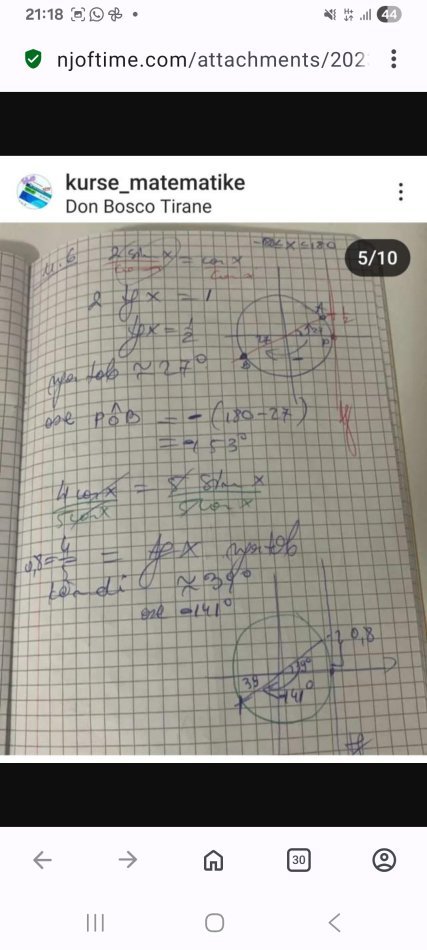 21:18
44
njoftime.com/attachments/202
kurse_matematike
Don Bosco Tirane
5/10
2 sin x = cos x
2 tg x = 1
tg x = 1/2
≈ 27°
ose PÔB = -(180-27)
= -153°
4 cos x = 5 sin x
5 cos x 5 cos x
0,8 = 4/5 = tg x
≈ 39°
ose -141°
0,8
39°
39
141°
30